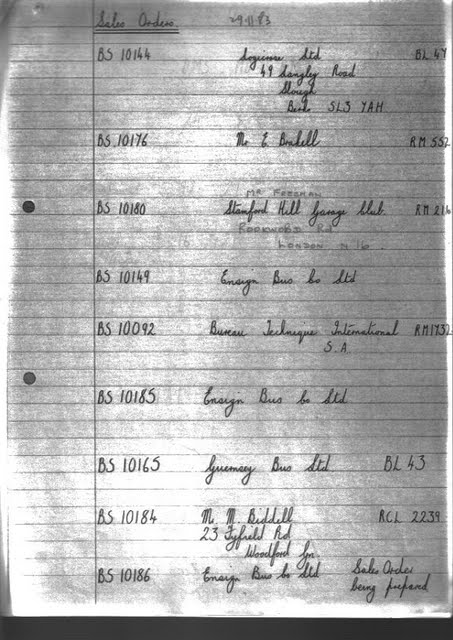 Sales Orders. 29.11.83
BS 10144 Ltd BL 47
49 Langley Road
Slough
Berks SL3 7AH
BS 10176 Mr E RM 557
MR FREEMAN
BS 10180 Stamford Hill Garage Club. RM 216
ROOKWOOD Rd
LONDON N 16.
BS 10149 Ensign Bus Co Ltd
BS 10092 Bureau Technique International RM1737
S.A.
BS 10185 Ensign Bus Co Ltd
BS 10165 Guernsey Bus Ltd BL 43
BS 10184 Mr M. Biddell RCL 2239
23 Fyfield Rd
Woodford Gn.
BS 10186 Ensign Bus Co Ltd Sales Order
being prepared